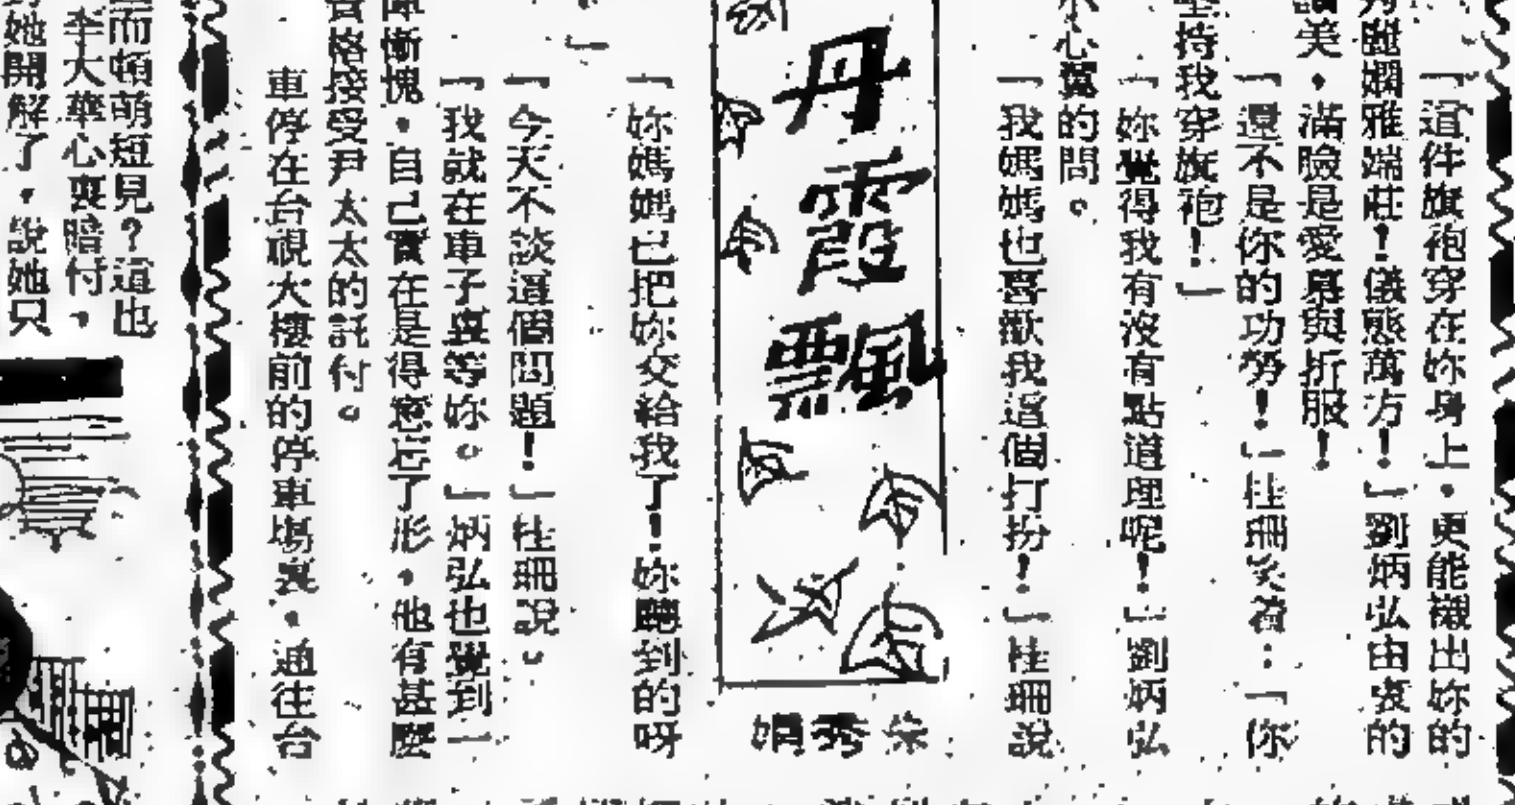 「這件旗袍穿在妳身上，更能襯出妳的
秀麗嫻雅端莊！儀態萬方！」劉炳弘由衷的
讚美，滿臉是愛慕與折服！
「還不是你的功勞！」桂珊笑着：「你
堅持我穿旗袍！」
「妳覺得我有沒有點道理呢！」劉炳弘
小心翼的問。
「我媽媽也喜歡我這個打扮！」桂珊說
丹霞飄
朱秀娟
「妳媽媽已把妳交給我了！妳聽到的呀
」
「今天不談這個問題！」桂珊說。
「我就在車子裏等妳。」炳弘也覺到一
陣慚愧，自己實在是得意忘了形，他有甚麼
資格接受尹太太的託付。
車停在台視大樓前的停車場裏，通往台
而頓萌短見？這也
李大華心喪賠付，
她開解了，說她只